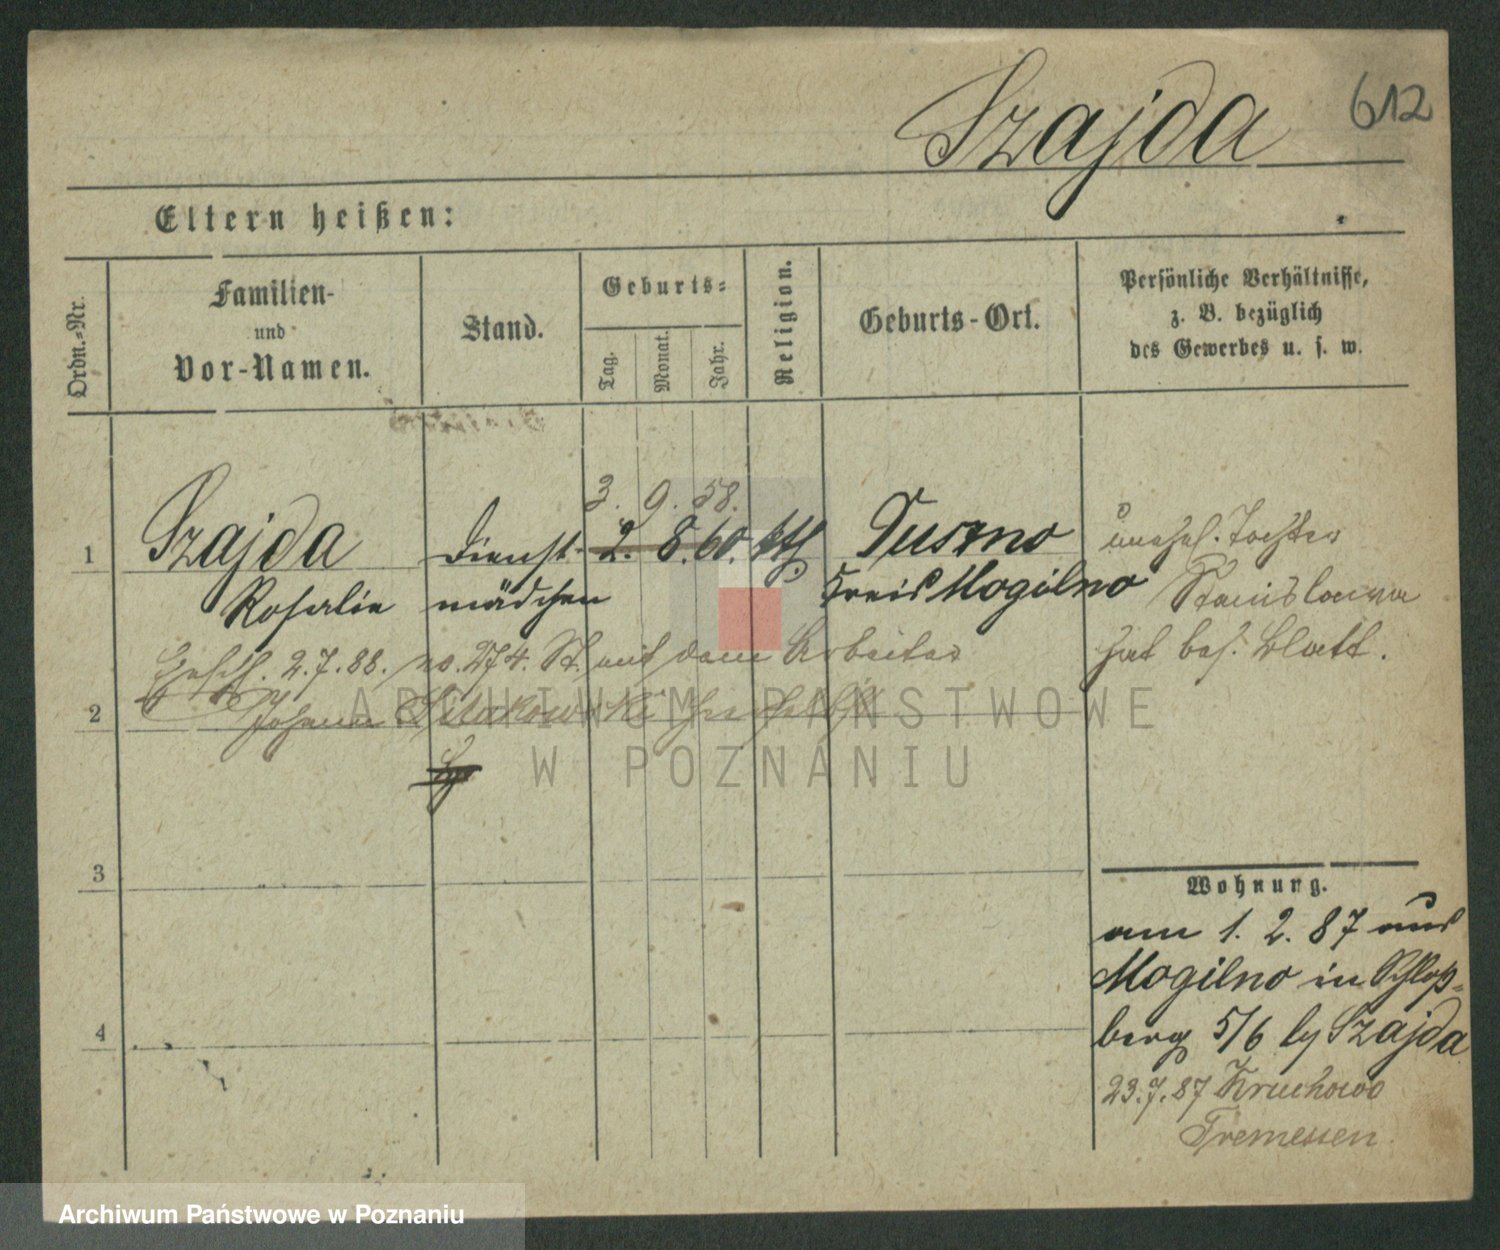 612
Szajda
Eltern heißen:
Ordn.-Nr.
Familien-
und
Vor-Namen.
Stand.
Geburts-
Tag.
Monat.
Jahr.
Religion.
Geburts-Ort.
Persönliche Verhältnisse,
z. B. bezüglich
des Gewerbes u. s. w.
3. 9. 58.
1 Szajda Dienst- 2. 8. 60. kth. Tuszno unehel. Tochter
Rosalie mädchen Kreis Mogilno Stanislawa
hat bes. Blatt.
2.7.88. No. 274. St. mit dem Arbeiter
2 Johann
ARCHIWUM PAŃSTWOWE
W POZNANIU
3
Wohnung.
am 1. 2. 87 aus
Mogilno in Schloß-
berg 5/6 by Szajda
4
23.7.87 Kruchowo
Tremessen
Archiwum Państwowe w Poznaniu